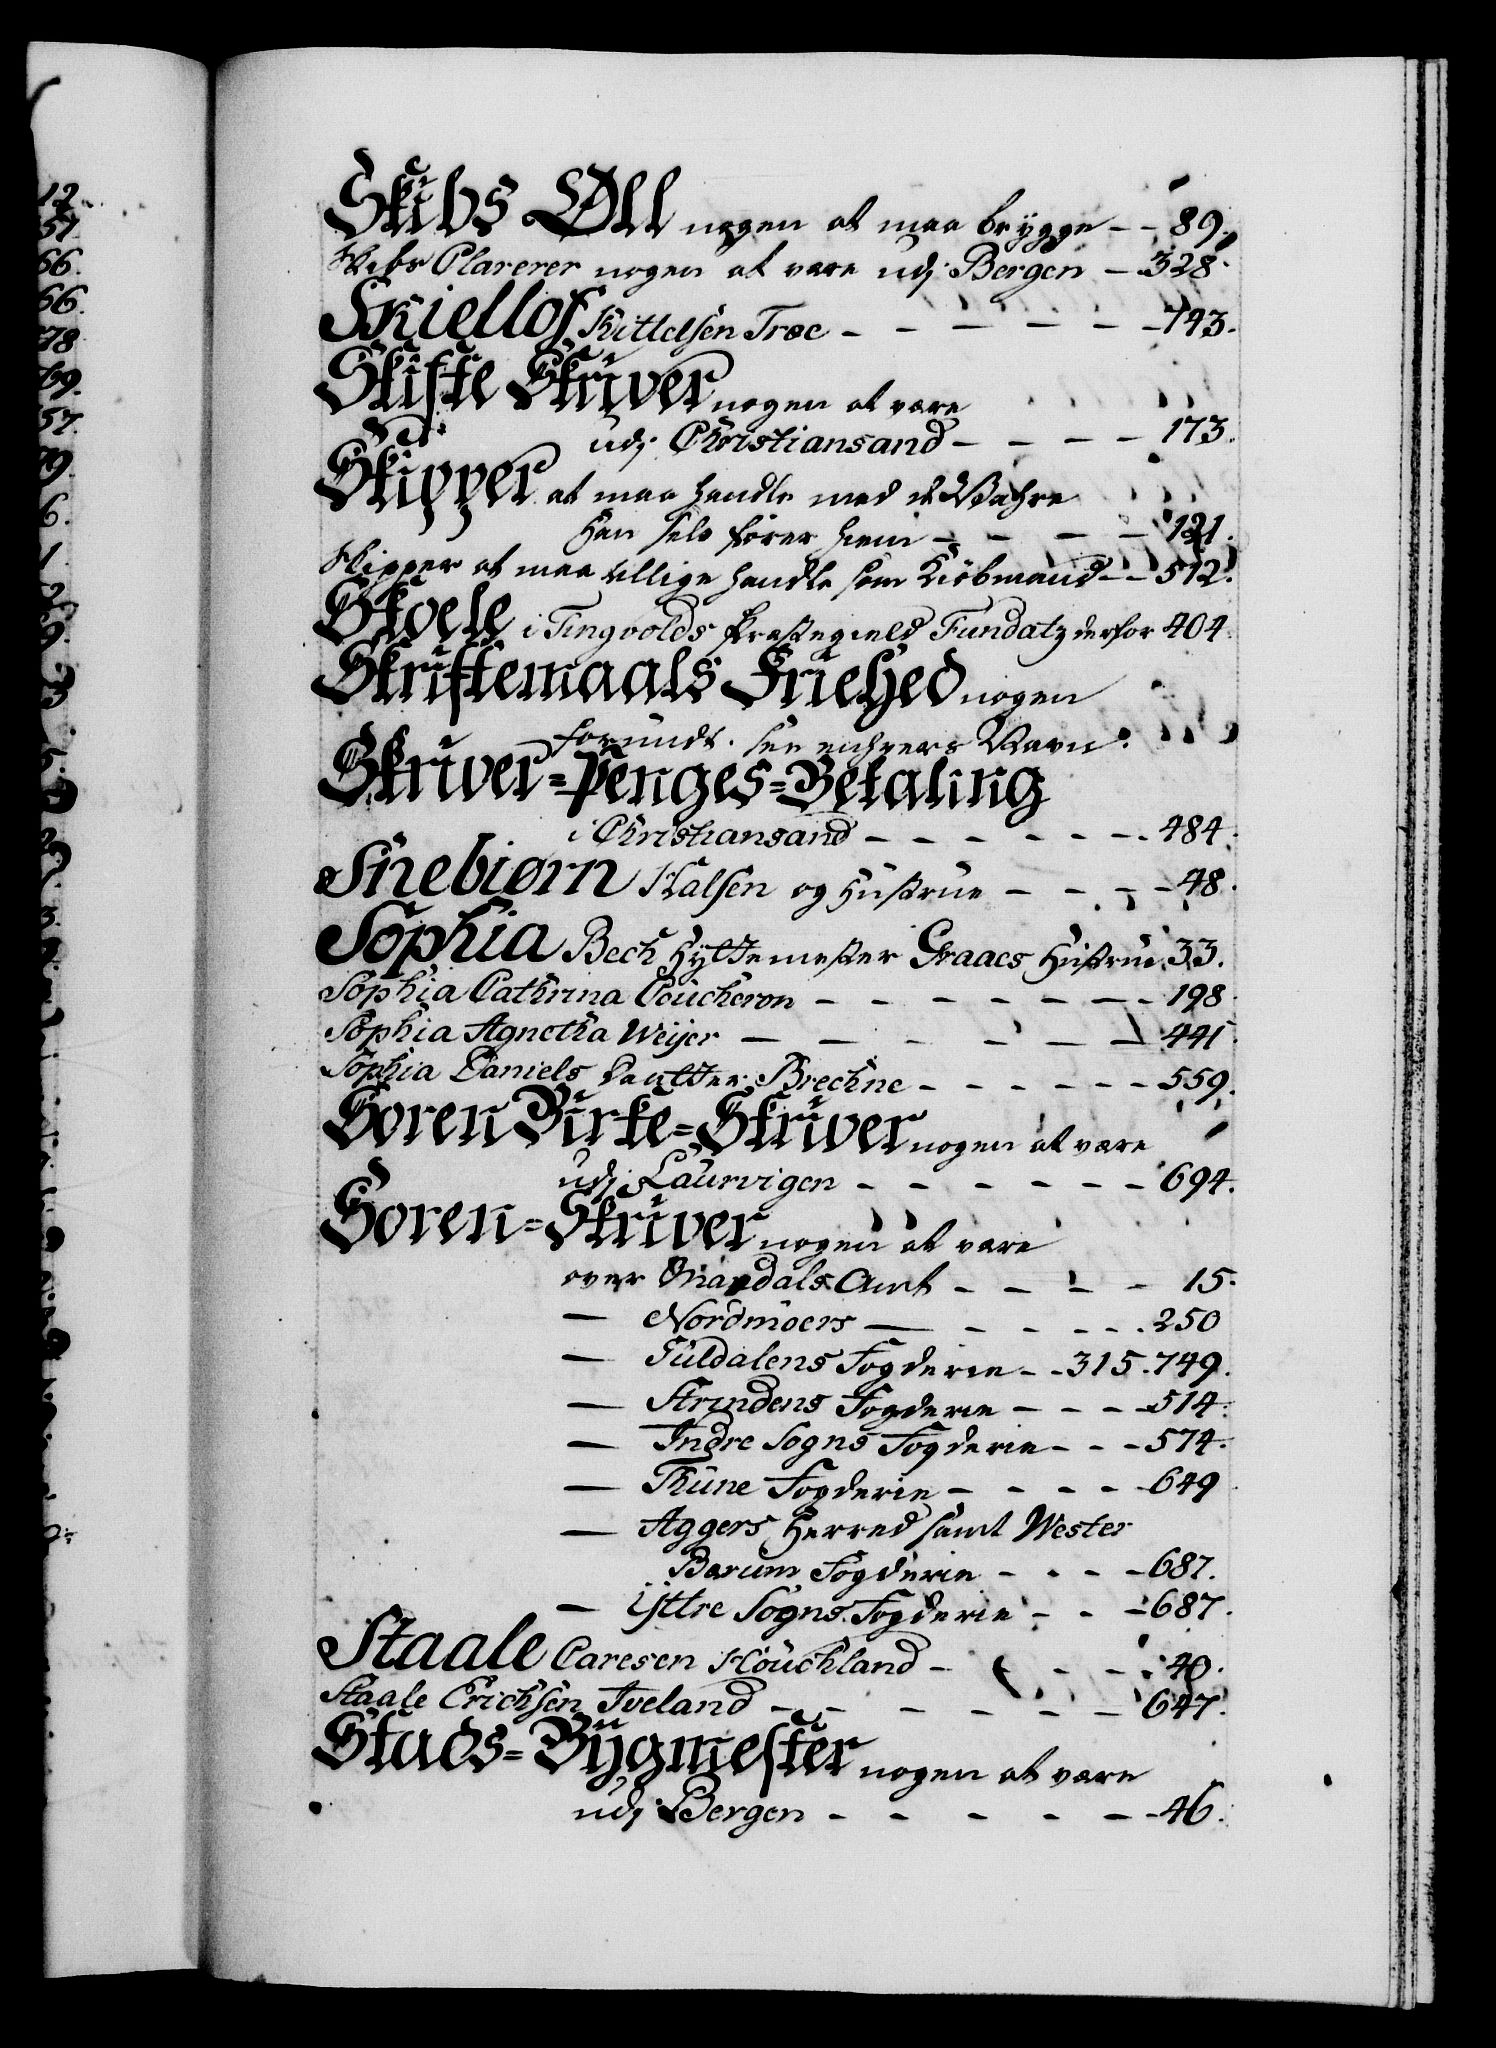 Skibs Øll nogen at maa brygge - - 89.
Skibs Clarerer nogen at være udj Bergen - 328.
Skiellof Kittelsen Træe - - - - - - 743.
Skifte Skriver nogen at være
udj Christiansand - - - - 173.
Skipper at maa handle med de Wahre
Han selv fører hiem - - - - 121.
Skipper at maa tillige handle som Kiöbmand - - 512.
Skoele i Tingvolds Præstegield Fundatz derfor 404
Skriftemaals Friehed nogen
forundt. see enhvers Navn.
Skriver=Penges=Betaling
i Christiansand - - - - - - - 484.
Snebiørn Halsen og Hustrue - - - - 48.
Sophia Bech Hyttemester Graaes Hustrue 33.
Sophia Cathrina Coucheron - - - - - - - 198
Sophia Agnetha Weijer - - - - - - 441
Sophia Daniels Daatter Brechne - - - - - - 559.
Soren Birke=Skriver nogen at være
udj Laurvigen - - - - - - - 694.
Soren=Skriver nogen at være
over Mandals Amt - - - - 15.
— Nordmoers - - - - - 250
— Guldalens Fogderie - - 315. 749.
— Strindens Fogderie - - - - 514.
— Indre Sogns Fogderie - - - 574.
— Thune Fogderie - - - - - 649
— Aggers Herred samt Wester
Barum Fogderie - - - - 687.
— ijttre Sogns Fogderie - - - 687.
Staale Caresen Houchland - - - - 40.
Staale Erichsen Iveland - - - - - - 647.
Stads=Bÿgmester nogen at være
udj Bergen - - - - - - 46.